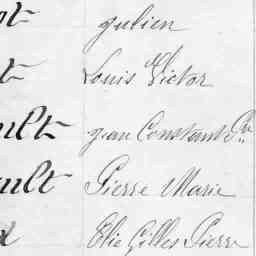 julien
Louis Victor
jean Constant
ault Pierre Marie
Elie Gilles Pierre